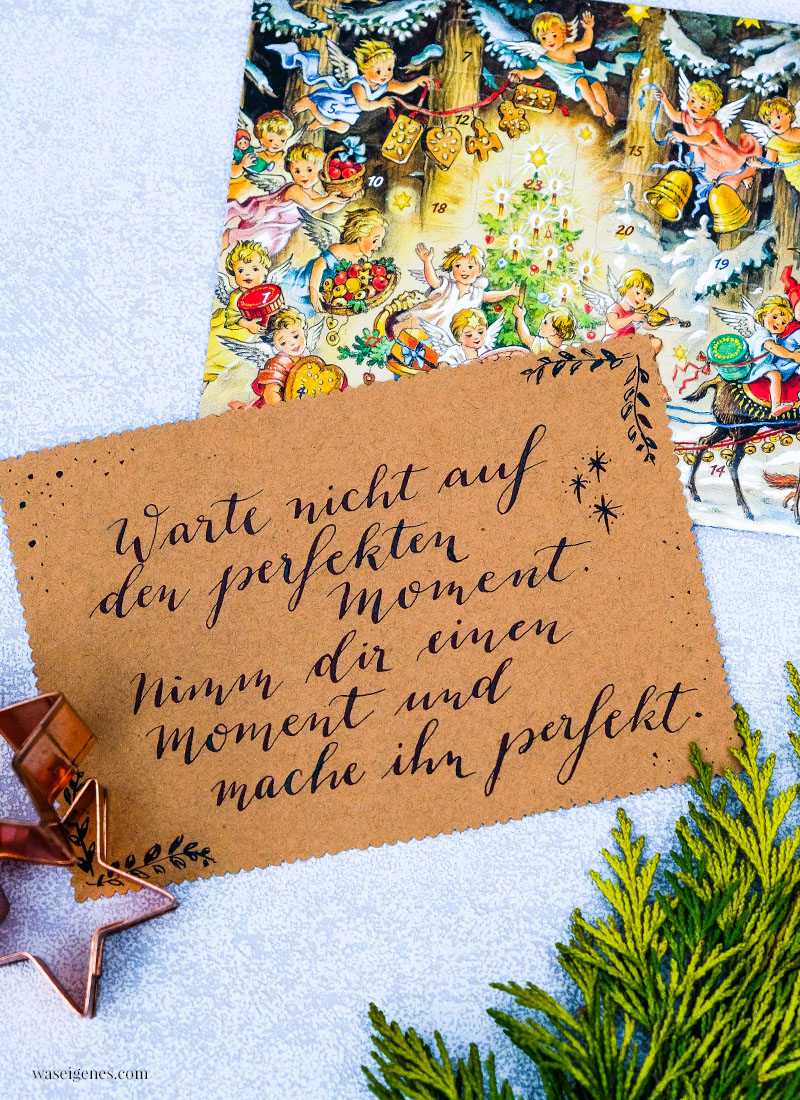 5
7
9
12
10
15
18
23
20
19
1
4
14
Warte nicht auf
den perfekten
Moment.
Nimm dir einen
Moment und
mache ihn perfekt.
waseigenes.com